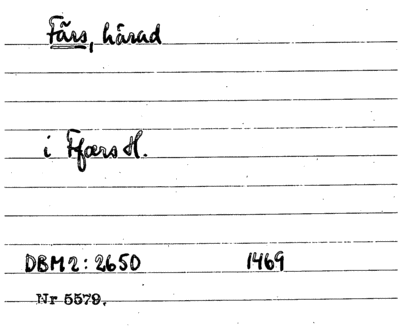 Färs, härad
i Ffærs H.
DBM 2: 2650 1469
Nr 5579.